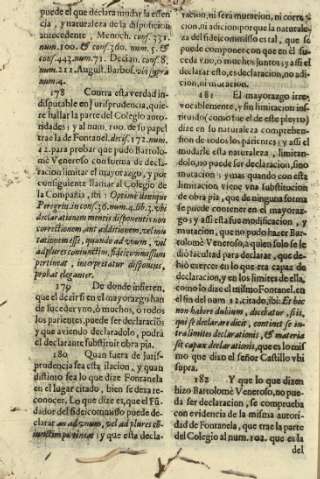 puede el que declara mudar la essen
cia, y naturaleza de la disposicion
antecedente, Menoch. cons. 31.
num. 100. & cons. 360. num. 5. &
cons. 443. num. 71. Decian. cons. 8.
num. 211. August. Barbos. vbi supra
num. 4.
178 Contra esta verdad in-
disputable en Jurisprudencia, quie-
re hallar la parte del Colegio auto-
ridades: y al num. 100. de su papel
trae la de Fontanel. decis. 172. num.
22. para probar que pudo Bartolo-
mè Veneroso con forma de decla-
racion limitar el mayorazgo, y por
consiguiente llamar al Colegio de
la Compañia, ibi: Optime denique
Peregrin. in cons. 76. num. 4. lib. 2. vbi
declarationem mentis disponentis non
correctionem aut additionem, vel mu
tationem esse, quando ad vnum, vel
ad plures coniunctim, fideicommissum
pertineat, interpretatur disponens,
probat eleganter.
179 De donde infieren,
que el dezir si en el mayorazgo han
de suceder vno, ò muchos, ò todos
los parientes, puede ser declaracion
y que aviendo declaradolo, podrà
el declarante substituir obra pia.
180 Quan fuera de Juris-
prudencia sea esta ilacion, y quan
distinto sea lo que dize Fontanela
en el lugar citado, bien se dexa re-
conocer. Lo que dize es, que el Fũ-
dador del fideicomisso puede de-
clarar an ad vnum, vel ad plures co-
iunctim pertineat; y que esta decla-
racion, ni serà mutacion, ni correc-
cion, ni adicion porque la naturale-
za del fideicomisso es tal, que se
puede componer con que en èl su-
ceda vno, ò muchos juntos; y assi el
declarar esto, es declaracion, no adi-
cion, ni mutacion.
181 El mayorazgo irre-
vocablemente, y sin limitacion ins-
tituido (como fue el de este pleyto)
dize en su naturaleza comprehen-
sion de todos los parientes; y assi el
mudarle esta naturaleza, limitan-
dolo, no puede ser declaracion, sino
mutacion: y mas quando con esta
limitacion viene vna substitucion
de obra pia, que de ninguna forma
se puede contener en el mayoraz-
go; y assi esta fue modificacion, y
mutacion, que no pudo hazer Barto-
lomè Veneroso, a quien solo se le
diò facultad para declarar, que de-
biò exercer en lo que era capaz de
declaracion, y en los limites de ella,
como lo dize el mismo Fontanel. en
el fin del num. 22. citado, ibi: Et hoc
non habere dubium, ducatur, si is,
qui se declarare dicit, contineat se in-
tra limites declarationis, & materia
sit capax declarationis, que es lo mis-
mo que dixo el señor Castillo vbi
supra.
182 Y que lo que dizen
hizo Bartolomè Veneroso, no pue-
da ser declaracion, se comprueba
con evidencia de la misma autori-
dad de Fontanela, que trae la parte
del Colegio al num. 102. que es la
del